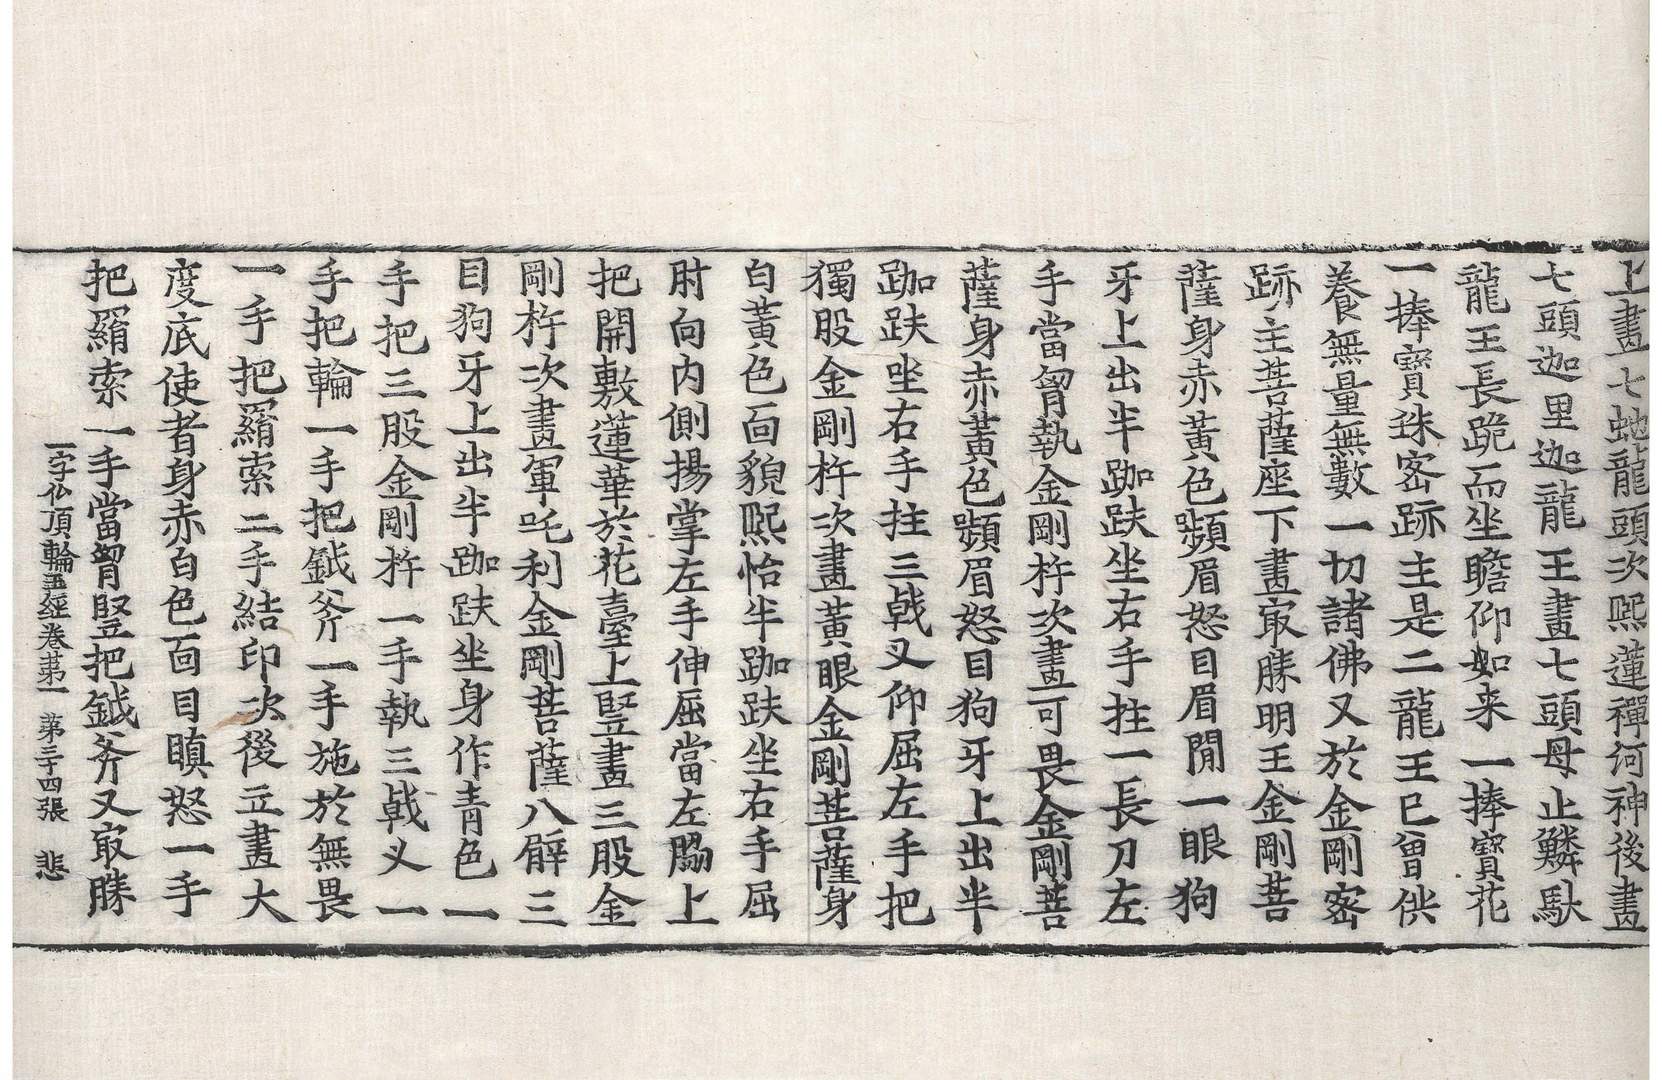 上畫七虵龍頭次熙蓮禪河神後畫
七頭迦里迦龍王畫七頭母止鱗馱
龍王長跪而坐瞻仰如来一捧寶花
一捧寶珠宻跡主是二龍王已曾供
養無量無數一切諸佛又於金剛宻
跡主菩薩座下畫㝡勝明王金剛菩
薩身赤黃色顰眉怒目眉閒一眼狗
牙上出半跏趺坐右手拄一長刀左
手當𦙄執金剛杵次畫可畏金剛菩
薩身赤黃色顰眉怒目狗牙上出半
跏趺坐右手拄三戟叉仰屈左手把
獨股金剛杵次畫黃眼金剛菩薩身
白黃色面貌熙怡半跏趺坐右手屈
肘向内側揚掌左手伸屈當左脇上
把開敷蓮華於花臺上竪畫三股金
剛杵次畫軍吒利金剛菩薩八臂三
目狗牙上出半跏趺坐身作青色一
手把三股金剛杵一手執三戟叉一
手把輪一手把鉞斧一手施於無畏
一手把羂索二手結印次後立畫大
度底使者身赤白色面目瞋怒一手
把羂索一手當𦙄竪把鉞斧又㝡勝
一字仏頂輪王經卷苐一 苐三十四張 悲